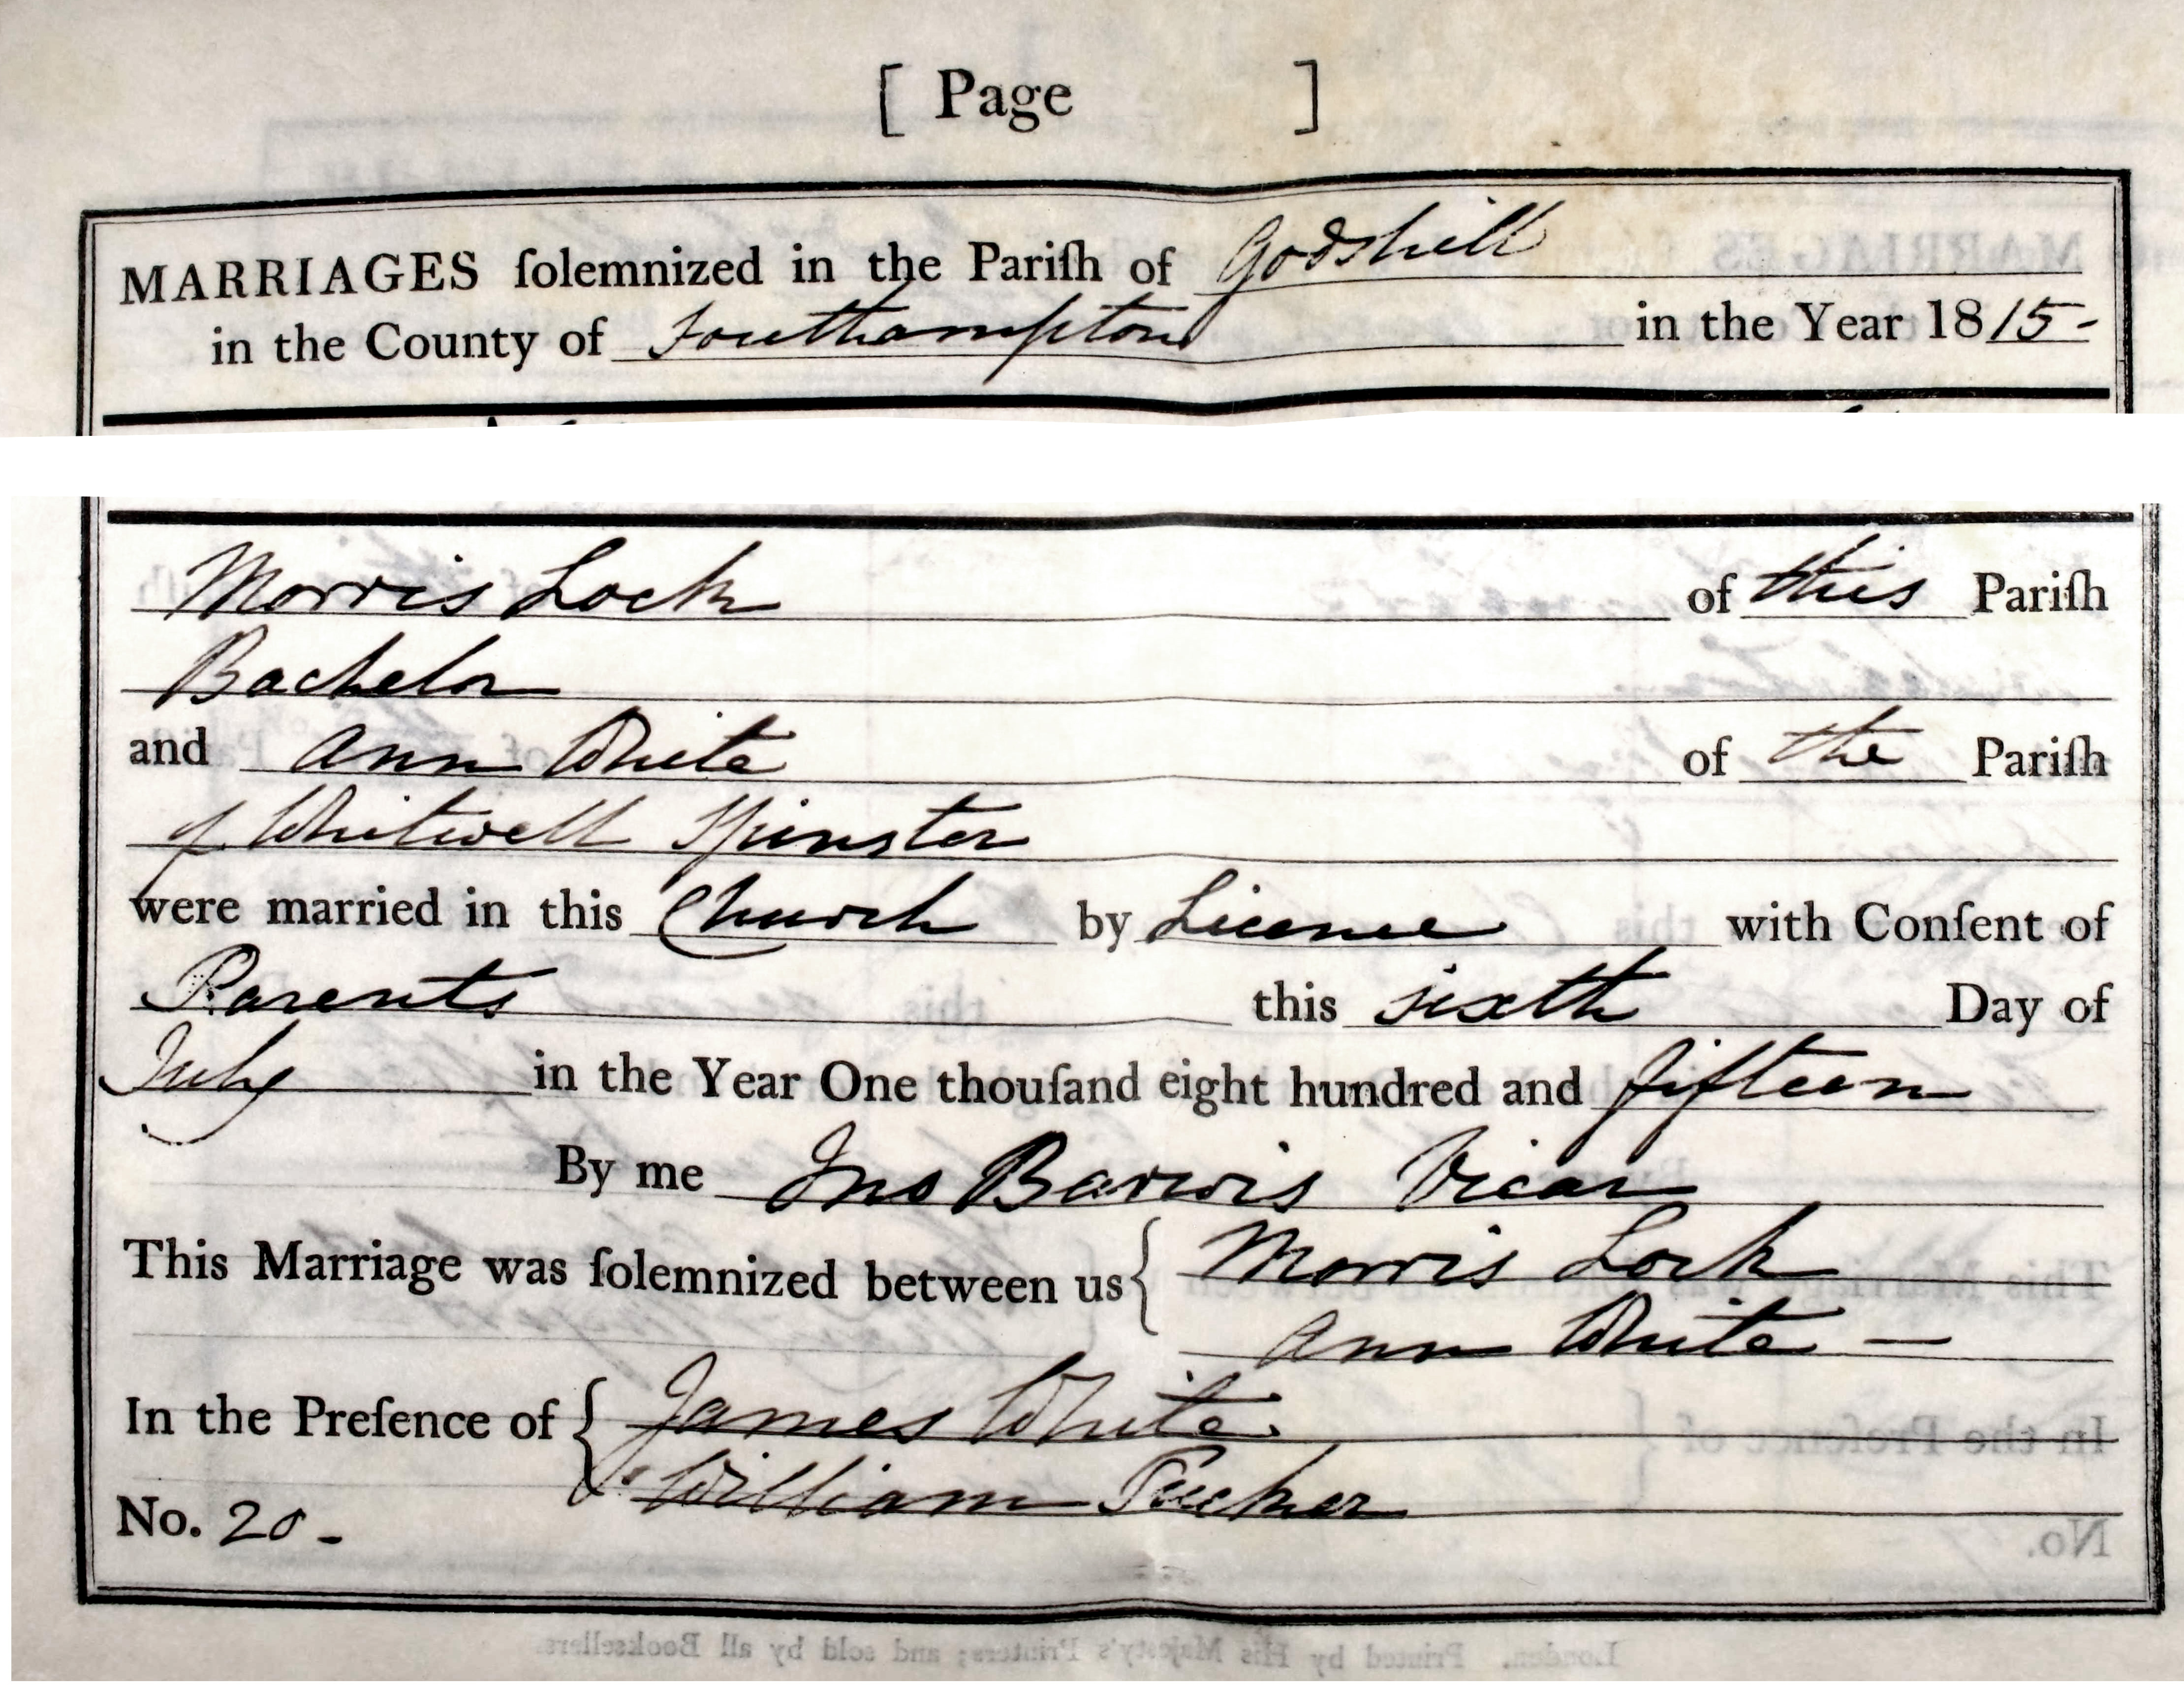 [ Page ]
MARRIAGES ſolemnized in the Pariſh of Godshill
in the County of Southampton in the Year 1815-
Morris Lock of this Pariſh
Bachelor
and Ann White of the Pariſh
of Whitwell Spinster
were married in this Church by Licence with Conſent of
Parents this sixth Day of
July in the Year One thouſand eight hundred and fifteen
By me Jno Barwis Vicar
This Marriage was ſolemnized between us { Morris Lock
Ann White —
In the Preſence of { James White
William Tucker
No. 20 -